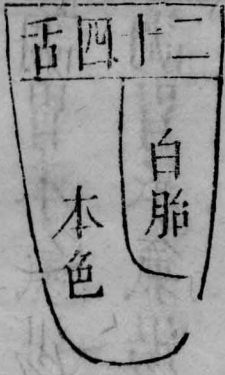 二十四舌
白胎
本色